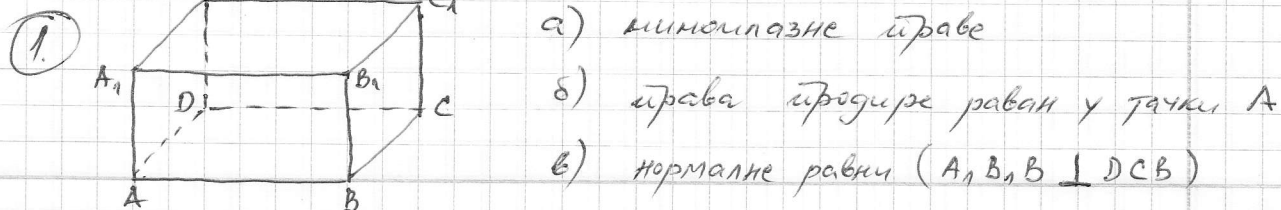 1.
C1
A1
B1
D
C
A
B
а) мимоилазне праве
б) права продире раван у тачки A
в) нормалне равни (A1B1B ⊥ DCB)